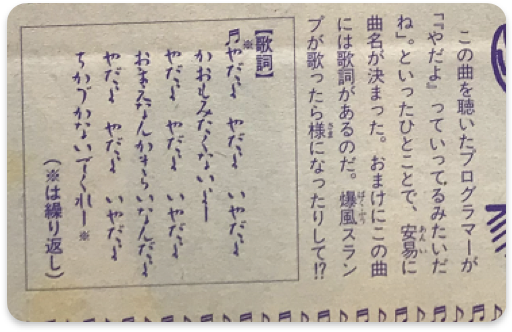 この曲を聴いたプログラマーが
「『やだよ』っていってるみたいだ
ね」。といったひとことで、安易に
曲名が決まった。おまけにこの曲
には歌詞があるのだ。爆風スラン
プが歌ったら様になったりして!?
【歌詞】
♬※やだよ やだよ いやだよ
かおもみたくないよー
やだよ やだよ いやだよ
おまえなんかきらいなんだよ
やだよ やだよ いやだよ
ちかづかないでくれー※
(※は繰り返し)